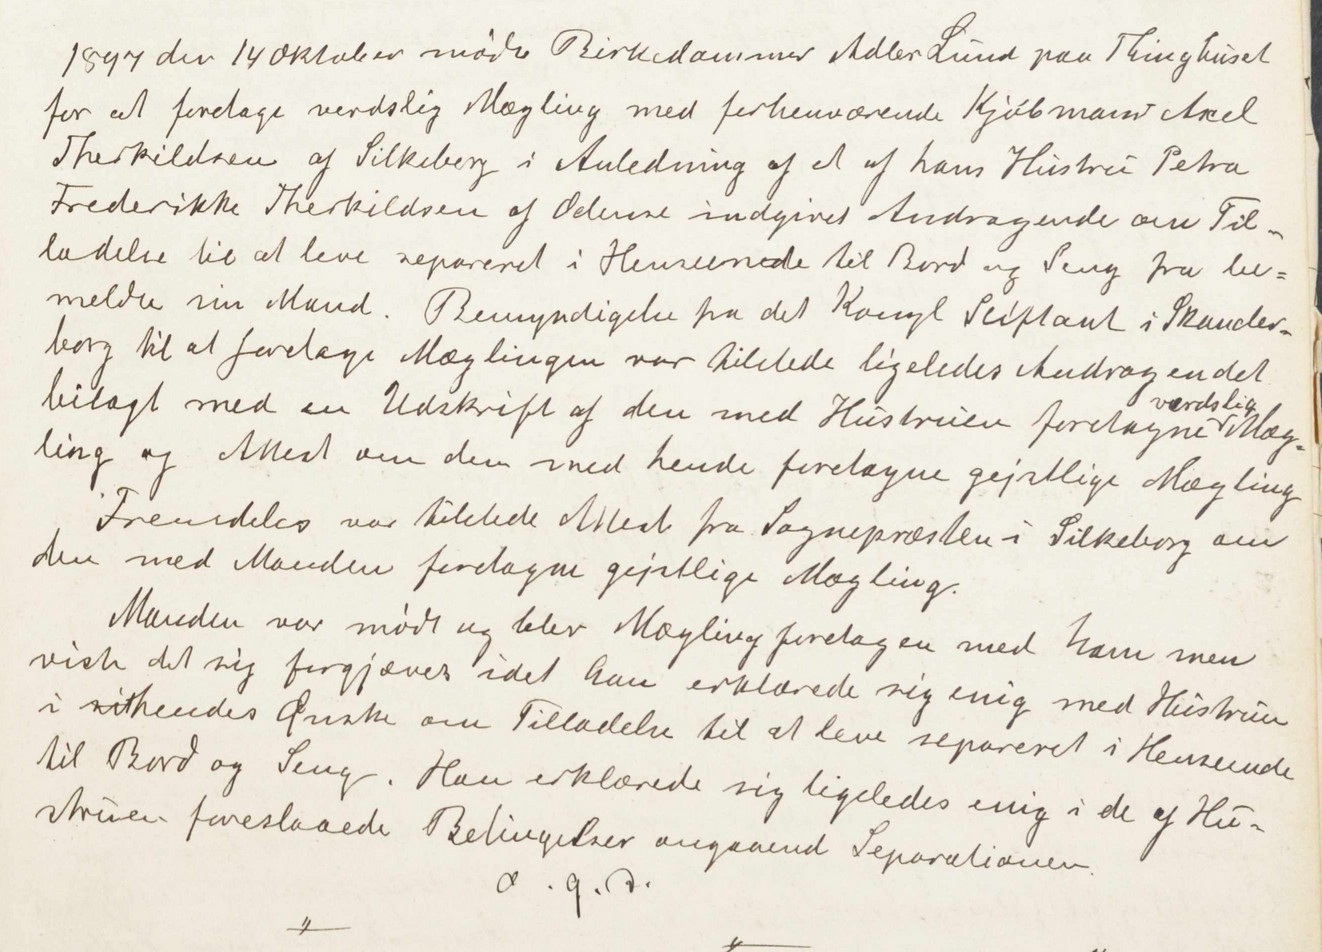 1897 den 14 Oktober mødte Birkedommer Adler Lund paa Thinghuset
for at foretage verdslig Mægling med forhenværende Kjøbmand Axel
Therkildsen af Silkeborg i Anledning af et af hans Hustru Petra
Frederikke Therkildsen af Odense indgivet Andragende om Til-
ladelse til at leve separeret i Henseende til Bord og Seng fra be-
meldte sin Mand. Bemyndigelse fra det Kongl Stiftamt i Skander-
borg til at foretage Mæglingen var tilstede ligeledes Andragendet
bilagt med en Udskrift af den med Hustruen foretagne verdslig Mæg-
ling og Attest om den med hende foretagne gejstlige Mægling
Fremdeles var tilstede Attest fra Sognepræsten i Silkeborg om
den med Manden foretagne gejstlige Mægling.
Manden var mødt og blev Mægling foretagen med ham men
viste det sig forgjæves idet han erklærede sig enig med Hustruen
i sit hendes Ønske om Tilladelse til at leve separeret i Henseende
til Bord og Seng. Han erklærede sig ligeledes enig i de af Hu-
struen foreslaaede Betingelser angaaend Separationen.